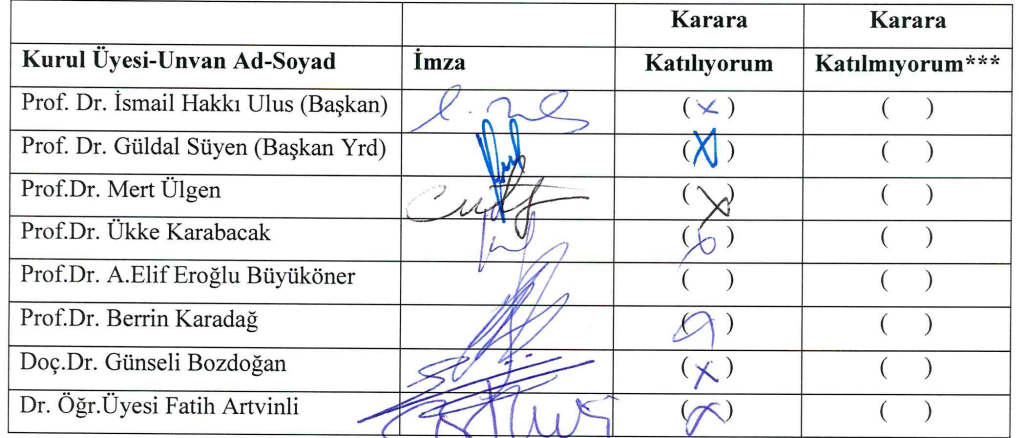 Karara Karara
Kurul Üyesi-Unvan Ad-Soyad İmza Katılıyorum Katılmıyorum***
Prof. Dr. İsmail Hakkı Ulus (Başkan) ( x ) ( )
Prof. Dr. Güldal Süyen (Başkan Yrd) ( x ) ( )
Prof.Dr. Mert Ülgen ( x ) ( )
Prof.Dr. Ükke Karabacak ( x ) ( )
Prof.Dr. A.Elif Eroğlu Büyüköner ( ) ( )
Prof.Dr. Berrin Karadağ ( ) ( )
Doç.Dr. Günseli Bozdoğan ( x ) ( )
Dr. Öğr.Üyesi Fatih Artvinli ( x ) ( )